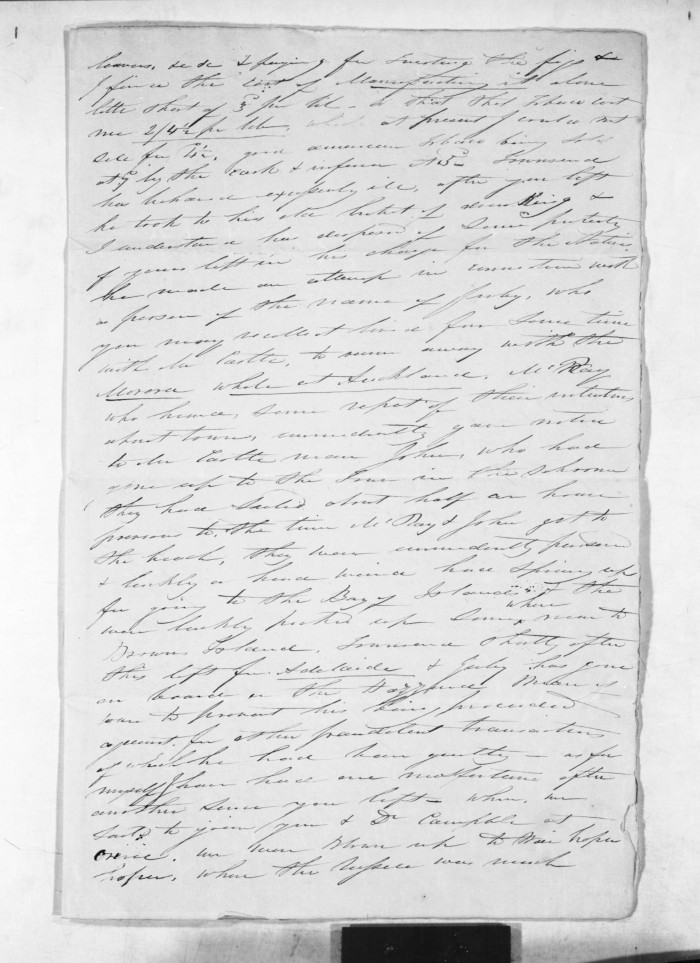 leaves, &c &c & paying for Sweating the figs &
I find the cost of Manufacturing it alone
little short of 3 per lb. so that that Tobacco cost
me 2/4½ per lb, which at present I could not
sell for 1/2, good american tobacco being sold
at by the cask & inferior at 5 - Townsend
has behaved exceedingly ill, after you left
he took to his old habit of drinking &
I understand has disposed of some property
of yours left in his charge for the Natives
He made an attempt in connection with
a person of the name of Juby, who
you may recollect lived for some time
with Mr Castle, to run away with the
while at Auckland. McRay
who heard some report of their intentions
about town, immediately gave notice
to Mr Castle man John, who had
gone up to the Town in the Schooner
they had sailed about half an hour
previous to the time McRay & John got to
the beach, they were immediately pursued
& luckily a head wind had sprung up
for going to the Bay of Islands & the
were luckily picked up when near to
Browns Island. Townsend shortly after
this left for Adelaide & Juby has gone
on board the Man of
war to prevent his being proceeded
against for other fraudulent transactions
of which he had been guilty - as for
myself I have had one misfortune after
another since you left - when we
sailed to join you & Dr Campble at
we were blown up to
where the vessel was much